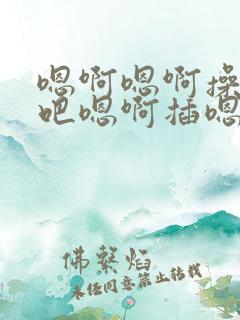 嗯啊嗯啊操
吧嗯啊插嗯
佛系焰
未经同意禁止转载